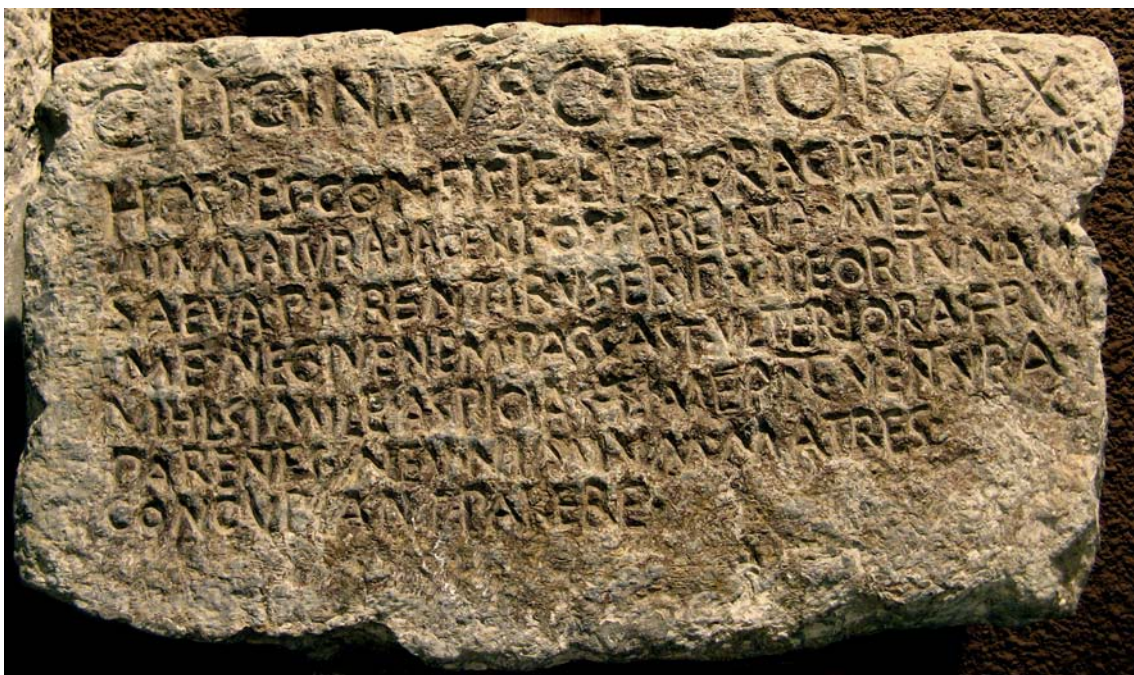 C·LICINIVS·C·F·TORAX
HOSPES·CONSISTE·ET·THORACIS·PERLEGE·NOMEN
INMATVRA·IACENT·OSSA·RELATA·MEA
SAEVA·PARENTIBVS·ERIPVIT·FORTVNA
ME·NEC·IVENEM·PASSAST·VLTERIORA·FRVI
NIHIL·SIMILE·ASPICIAS·TIMEANT·VENTVRA
PARENTES·NEV·NIMIVM·MATRES
CONCVPIANT·PARERE·